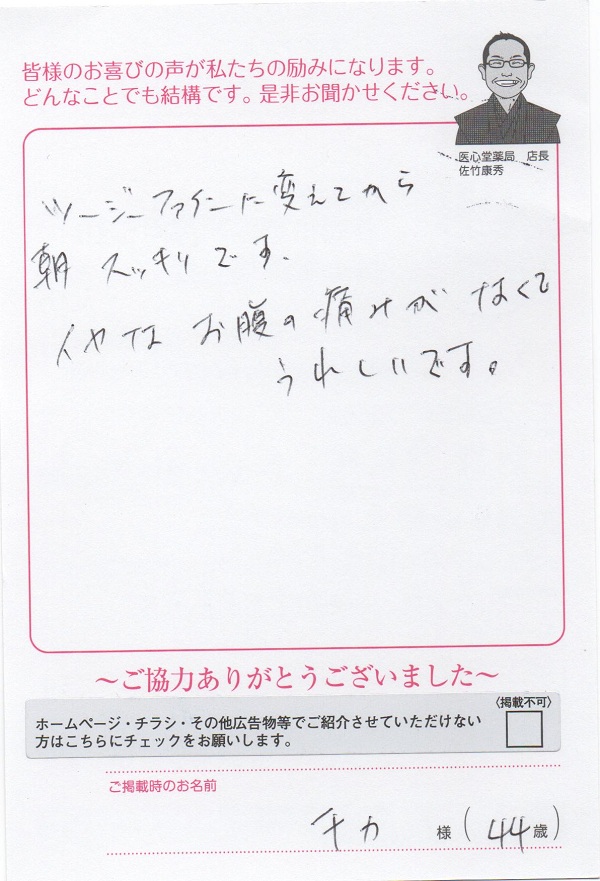 皆様のお喜びの声が私たちの励みになります。
どんなことでも結構です。是非お聞かせください。
医心堂薬局 店長
佐竹康秀
ツージーファインに変えてから
朝 スッキリです.
イヤな お腹の痛みが なくて
うれしいです。
～ご協力ありがとうございました～
〈掲載不可〉
ホームページ・チラシ・その他広告物等でご紹介させていただけない
方はこちらにチェックをお願いします。
ご掲載時のお名前
チカ 様(44歳)